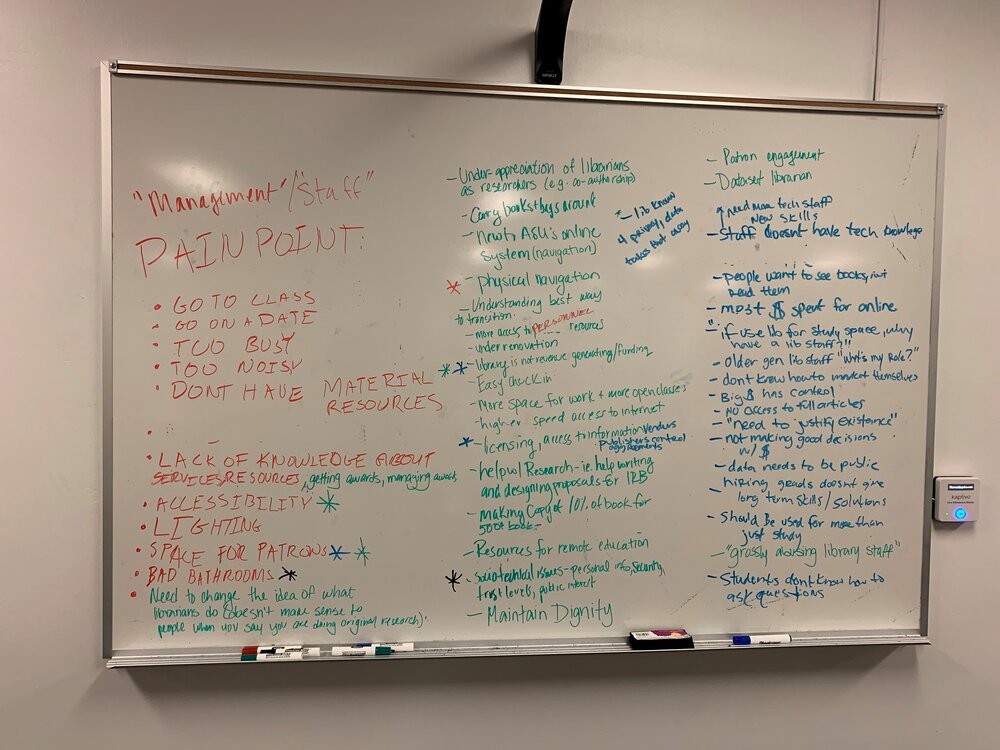 "Management"/"Staff"
PAIN POINT:
• GO TO CLASS
• GO ON A DATE
• TOO BUSY
• TOO NOISY
• DONT HAVE MATERIAL
RESOURCES
•
• LACK OF KNOWLEDGE ABOUT
SERVICES/RESOURCES, getting awards, managing awards
• ACCESSIBILITY *
• LIGHTING
• SPACE FOR PATRONS * *
• BAD BATHROOMS *
• Need to change the idea of what
librarians do (doesn't make sense to
people when you say you are doing original research).
- Under appreciation of librarians
as researchers (e.g. co-authorship)
- Carry books + bags around
- New to ASU's online
system (navigation)
* - physical navigation
- Understanding best way
to transition.
- more access to PERSONNEL resources
- under renovation
* * - library is not revenue generating/funding
- Easy check in
- More space for work + more open classes
- higher speed access to internet
* - licensing, access to information vendors
publishers control
agreements
- help w/ Research - ie. help writing
and designing proposals for IRB
- making Copy of 10% of book for
500+ book -
- Resources for remote education
* - Sociotechnical issues - personal info, security,
trust levels, public interest
- Maintain Dignity
* - lib know
privacy, data
takes that away
- Patron engagement
- Dataset librarian
↑ need more tech staff
New skills
- Staff doesnt have tech knowlege
- people want to see books, not
read them
- most $ spent for online
- "if use lib for study space, why
have a lib staff?!!
- Older gen lib staff "What's my Role?"
- dont know how to market themselves
- Big $ has control
- NO access to full articles
- "need to justify existence"
- not making good decisions
w/ $
- data needs to be public
- hiring grads doesnt give
long term skills/solutions
- Should be used for more than
just study
- "grossly abusing library staff"
- Students dont know how to
ask questions
kaptivo